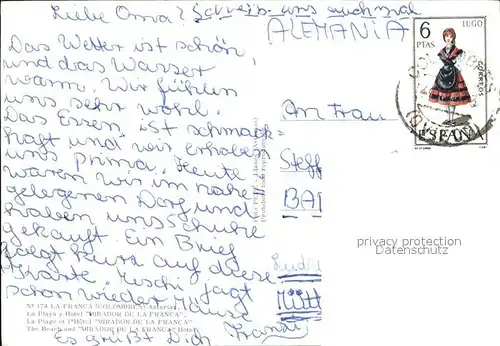 Liebe Oma! Schreib uns auch mal
ALEMANIA
6 PTAS
LUGO
CORREOS
ESPAÑA
Das Wetter ist schön,
und das Wasser
warm. Wir fühlen
uns sehr wohl.
Das Essen ist schmack=
haft und wir erholen
uns prima. Heute
waren wir im nahe
gelegenen Dorf und
haben uns Schuhe
gekauft. Ein Brief
folgt kurz auf diese
Karte. Muschi jagt
schon wieder Mäuse
Es grüßt Dich
An Frau
Steff
BAI
privacy protection
watermark
Nº 174 LA FRANCA (COLOMBRES) Asturias
La Playa y Hotel "MIRADOR DE LA FRANCA"
La Plage et l'Hôtel "MIRADOR DE LA FRANCA"
The Beach and "MIRADOR DE LA FRANCA" Hotel